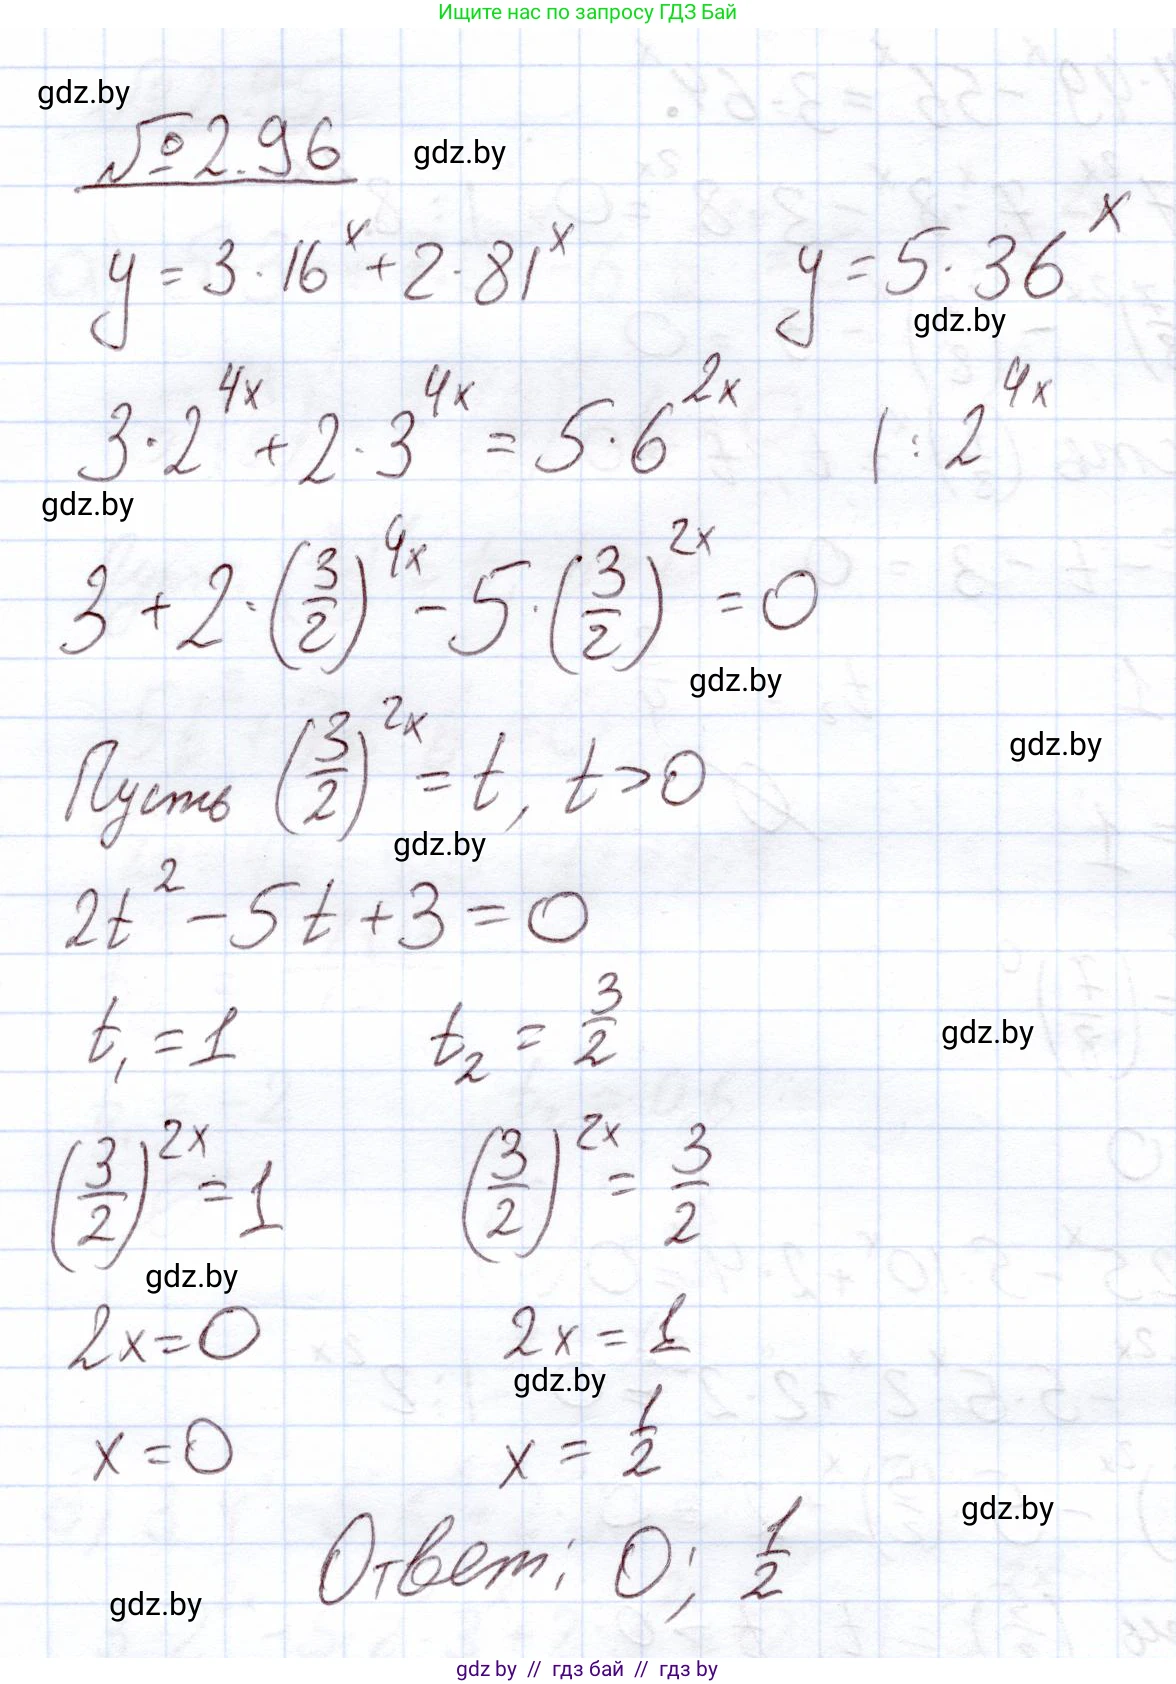 Ищите нас по запросу ГДЗ Бай
gdz.by
№ 2.96 gdz.by
y = 3 · 16^x + 2 · 81^x y = 5 · 36^x
gdz.by
3 · 2^4x + 2 · 3^4x = 5 · 6^2x | : 2^4x
gdz.by
3 + 2 · (3/2)^4x - 5 · (3/2)^2x = 0
gdz.by
gdz.by
Пусть (3/2)^2x = t, t > 0
gdz.by
2t^2 - 5t + 3 = 0
t1 = 1 t2 = 3/2 gdz.by
(3/2)^2x = 1 (3/2)^2x = 3/2
gdz.by
2x = 0 2x = 1
gdz.by
x = 0 x = 1/2
gdz.by
Ответ: 0; 1/2
gdz.by
gdz by // гдз бай // гдз by